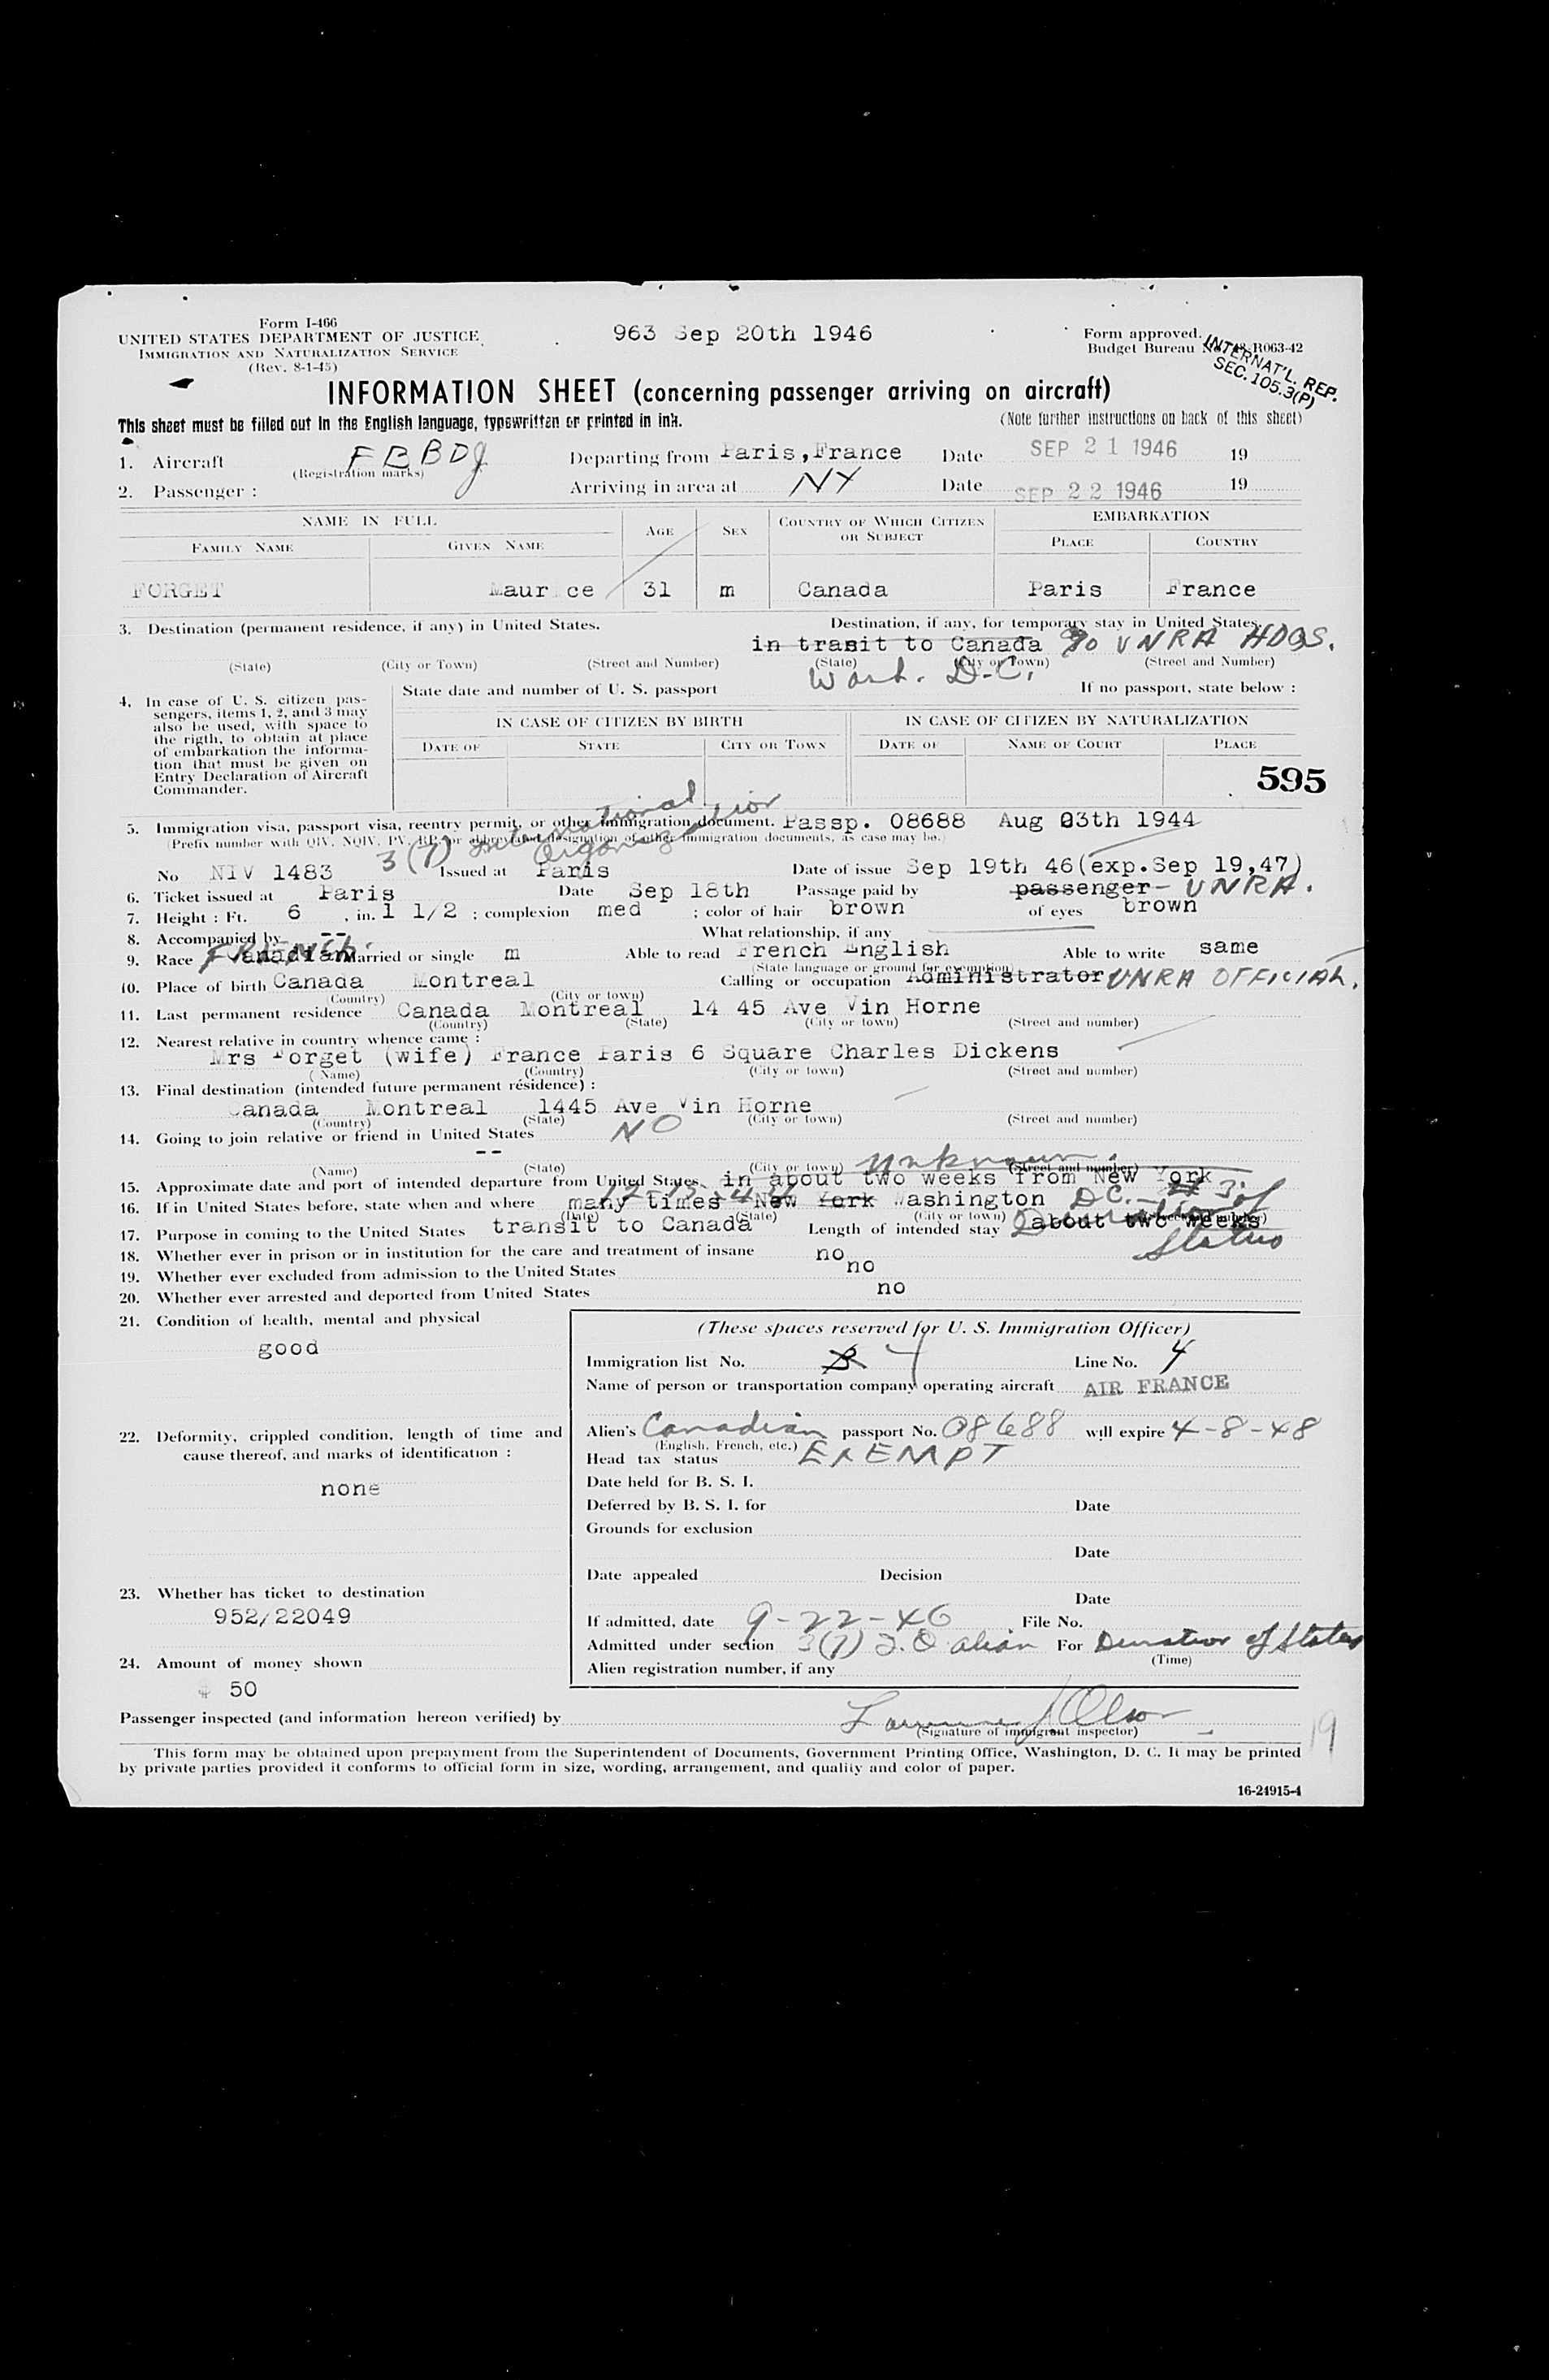 Form I-466
UNITED STATES DEPARTMENT OF JUSTICE
IMMIGRATION AND NATURALIZATION SERVICE
(Rev. 8-1-45)
963 Sep 20th 1946
Form approved.
Budget Bureau R063-42
INTERNAT'L. REP.
SEC. 105.3(P)
INFORMATION SHEET (concerning passenger arriving on aircraft)
This sheet must be filled out in the English language, typewritten or printed in ink.
(Note further instructions on back of this sheet)
1. Aircraft FBBDJ Departing from Paris,France Date SEP 21 1946 19
(Registration marks)
2. Passenger : Arriving in area at NY Date SEP 22 1946 19
NAME IN FULL AGE SEX COUNTRY OF WHICH CITIZEN OR SUBJECT EMBARKATION
FAMILY NAME GIVEN NAME PLACE COUNTRY
FORGET Maur ce 31 m Canada Paris France
3. Destination (permanent residence, if any) in United States. Destination, if any, for temporary stay in United States.
in transit to Canada % UNRA HDQS.
(State) (City or Town) (Street and Number) (State) (City or Town) (Street and Number)
Wash. D.C.
4. In case of U. S. citizen pas-
sengers, items 1, 2, and 3 may
also be used, with space to
the rigth, to obtain at place
of embarkation the informa-
tion that must be given on
Entry Declaration of Aircraft
Commander.
State date and number of U. S. passport If no passport, state below :
IN CASE OF CITIZEN BY BIRTH IN CASE OF CITIZEN BY NATURALIZATION
DATE OF STATE CITY OR TOWN DATE OF NAME OF COURT PLACE
595
5. Immigration visa, passport visa, reentry permit, or other immigration document. Passp. 08688 Aug 23th 1944
(Prefix number with QIV, NQIV, PV, RP, or abbreviated designation of other immigration documents, as case may be.)
3(7) International
Organization
No NIV 1483 Issued at Paris Date of issue Sep 19th 46(exp.Sep 19,47)
6. Ticket issued at Paris Date Sep 18th Passage paid by passenger - UNRA.
7. Height : Ft. 6 , in. 1 1/2 ; complexion med ; color of hair brown of eyes brown
8. Accompanied by -- What relationship, if any
9. Race Canadian FRENCH. Married or single m Able to read French English Able to write same
(State language or ground for exemption)
10. Place of birth Canada Montreal Calling or occupation Administrator UNRA OFFICIAL.
(Country) (City or town)
11. Last permanent residence Canada Montreal 14 45 Ave Vin Horne
(Country) (State) (City or town) (Street and number)
12. Nearest relative in country whence came :
Mrs Forget (wife) France Paris 6 Square Charles Dickens
(Name) (Country) (City or town) (Street and number)
13. Final destination (intended future permanent résidence) :
Canada Montreal 1445 Ave Vin Horne
(Country) (State) (City or town) (Street and number)
14. Going to join relative or friend in United States NO
--
(Name) (State) (City or town) (Street and number)
unknown.
15. Approximate date and port of intended departure from United States in about two weeks from New York
16. If in United States before, state when and where many times New York Washington D.C.
(Date) (State) (City or town) (Street and number)
17. Purpose in coming to the United States transit to Canada Length of intended stay about two weeks Duration of Status
18. Whether ever in prison or in institution for the care and treatment of insane no
19. Whether ever excluded from admission to the United States no
20. Whether ever arrested and deported from United States no
21. Condition of health, mental and physical
good
22. Deformity, crippled condition, length of time and
cause thereof, and marks of identification :
none
23. Whether has ticket to destination
952/22049
24. Amount of money shown
$ 50
(These spaces reserved for U. S. Immigration Officer)
Immigration list No. 4 Line No. 4
Name of person or transportation company operating aircraft AIR FRANCE
Alien's Canadian passport No. 08688 will expire 4-8-48
(English, French, etc.)
Head tax status EXEMPT
Date held for B. S. I.
Deferred by B. S. I. for Date
Grounds for exclusion
Date
Date appealed Decision
Date
If admitted, date 9-22-46 File No.
Admitted under section 3(7) I.O alien For Duration of Status
(Time)
Alien registration number, if any
Passenger inspected (and information hereon verified) by Lawrence J Olson
(Signature of immigrant inspector)
19
This form may be obtained upon prepayment from the Superintendent of Documents, Government Printing Office, Washington, D. C. It may be printed
by private parties provided it conforms to official form in size, wording, arrangement, and quality and color of paper.
16-24915-4